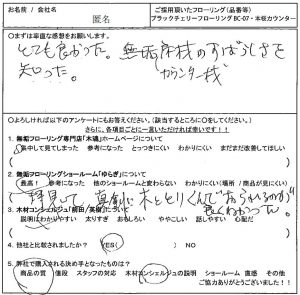 お名前 / イニシャル
匿名
ご採用頂いたフローリング(品番等)
ブラックチェリーフローリング BC-07・本桜カウンター
○まずは率直な感想をお願いします。
とても良かった。無垢床材のすばらしさを
カウンター材
知った。
○よろしければ以下のアンケートにもお答えください。(該当するところに○をしてください。)
さらに、各項目ごとに一言いただければ幸いです!!
1. 無垢フローリング専門店「木魂」ホームページについて
集中して見てしまった 参考になった とっつきにくい わかりにくい まだまだ改善してほしい
2. 無垢フローリングショールーム「ゆらぎ」について
最高! 参考になった 他のショールームと変わらない わかりにくい(場所 / 商品が見にくい)
拝見して真剣に木ととりくんでおられるのが
良くわかった。
説明はわかりやすい 太りすぎ おもしろい ややこしい 話しやすい 心配だ
4. 他社と比較されましたか? YES( ) NO
5. 弊社で購入される決め手となったものは?
商品の質 値段 スタッフの対応 木材コンシェルジュの説明 ショールーム 直感 その他
ご協力ありがとうございました!!